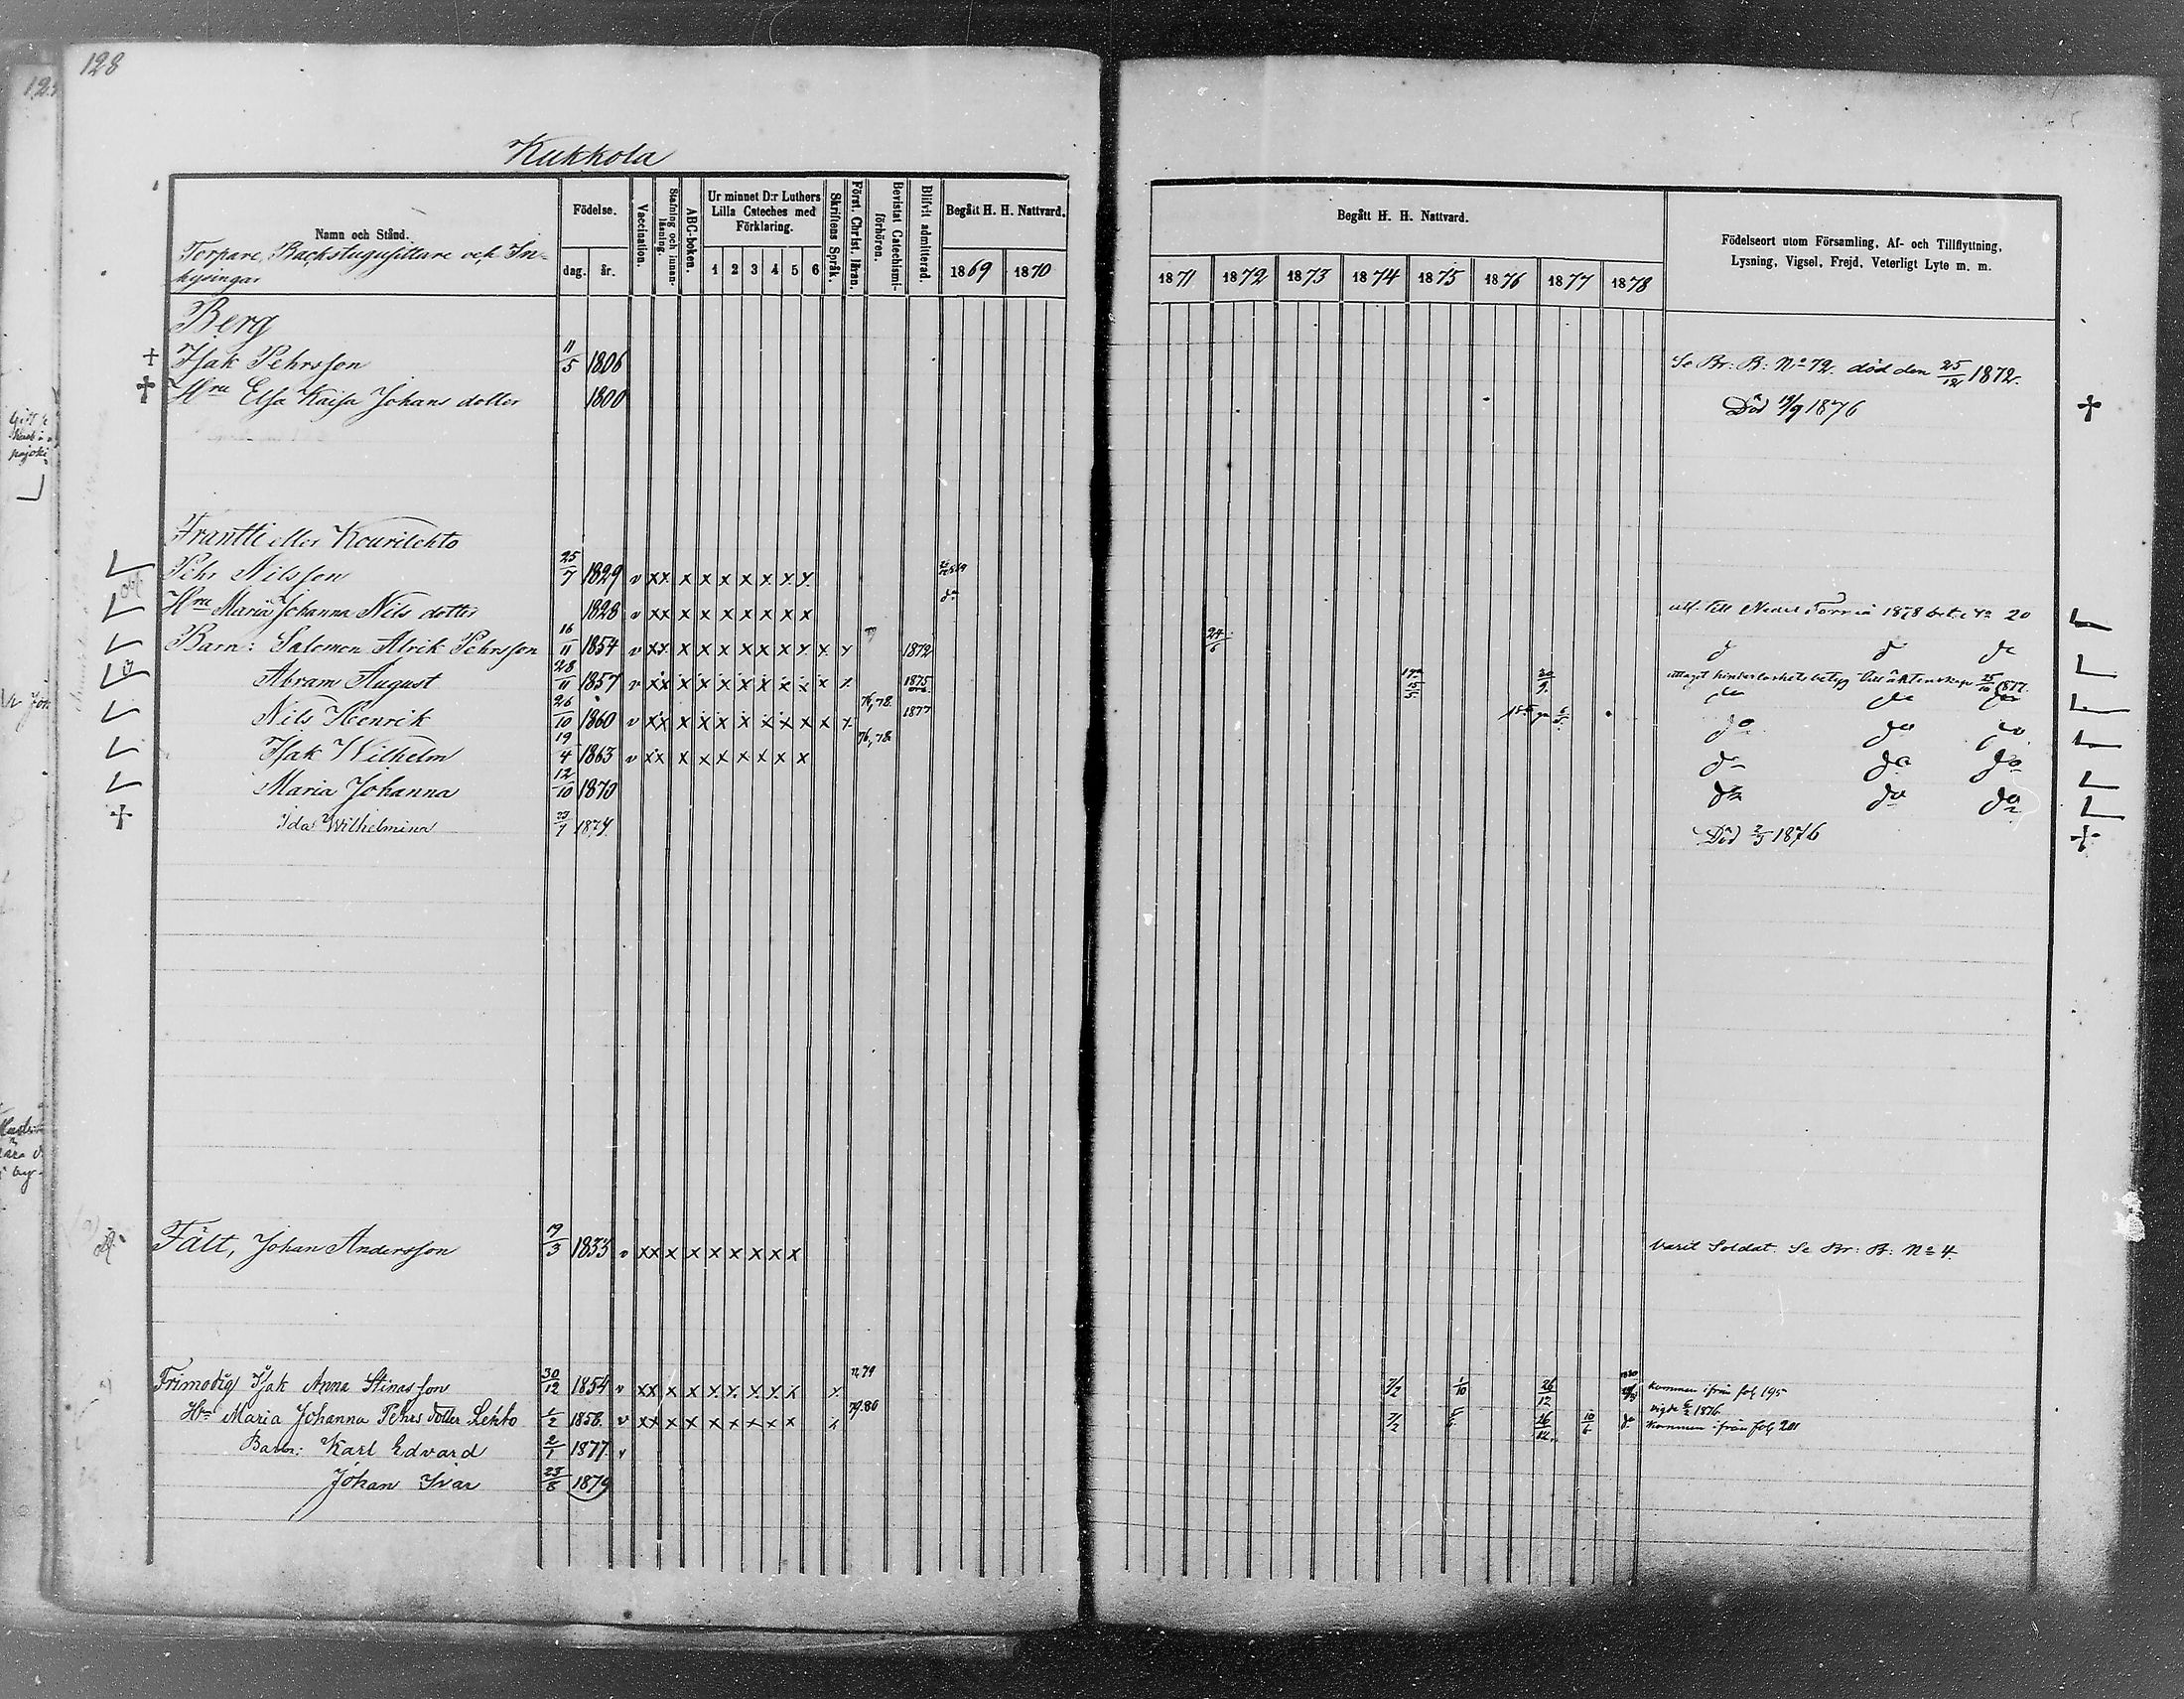 128
Kukkola
Namn och Stånd.
Torpare, Backstugusittare och In-
hysingar
Födelse.
dag. år.
Vaccination.
Stafning och innan-
läsning.
ABC-boken.
Ur minnet D:r Luthers
Lilla Cateches med
Förklaring.
1 2 3 4 5 6
Skriftens Språk.
Först. Christ. läran.
Bevistat Catechismi-
förhören.
Blifvit admitterad.
Begått H. H. Nattvard.
1869 1870
Begått H. H. Nattvard.
1871 1872 1873 1874 1875 1876 1877 1878
Födelseort utom Församling, Af- och Tillflyttning,
Lysning, Vigsel, Frejd, Veterligt Lyte m. m.
Berg
+ Isak Pehrsson 11/5 1806 Se Br: B: No 72. död den 25/12 1872.
+ Hru Elsa Kaisa Johans dotter 1800 Död 19/9 1876 +
Frantti eller Kourilehto
Pehr Nilsson 25/7 1829 v x x x x x x x x x
Hru Maria Johanna Nils dotter 1828 v x x x x x x x x x utf. till Neder Torneå 1878 bet. No 20
Barn: Salomon Alrik Pehrsson 16/11 1854 v x x x x x x x x x x x 1872 24/6 do do do
Abram August 28/11 1857 v x x x x x x x x x x x 1875 uttagit hinderlöshetsbetyg till äktenskap 25/10 1877.
do do do
Nils Henrik 26/10 1860 v x x x x x x x x x x x 76,78. 1877 do do do
Isak Wilhelm 19/4 1863 v x x x x x x x x x 76,78 do do do
Maria Johanna 12/10 1870 do do do
+ Ida Wilhelmina 23/7 1874. Död 2/3 1876 +
Fält, Johan Andersson 19/3 1833 v x x x x x x x x x Varit Soldat. Se Br: B: No 4.
Frimodig Isak Anna Stinas son 30/12 1854 v x x x x x x x x x x 79 7/2 1/10 26/12 kommen ifrån fol 195
vigde 5/2 1876
Hru Maria Johanna Pehrs dotter Lehto 1/2 1856. v x x x x x x x x x x 79.80 7/2 26/12 10/6 do kommen ifrån fol 201
Barn: Karl Edvard 2/1 1877. v
Johan Ivar 23/8 1879